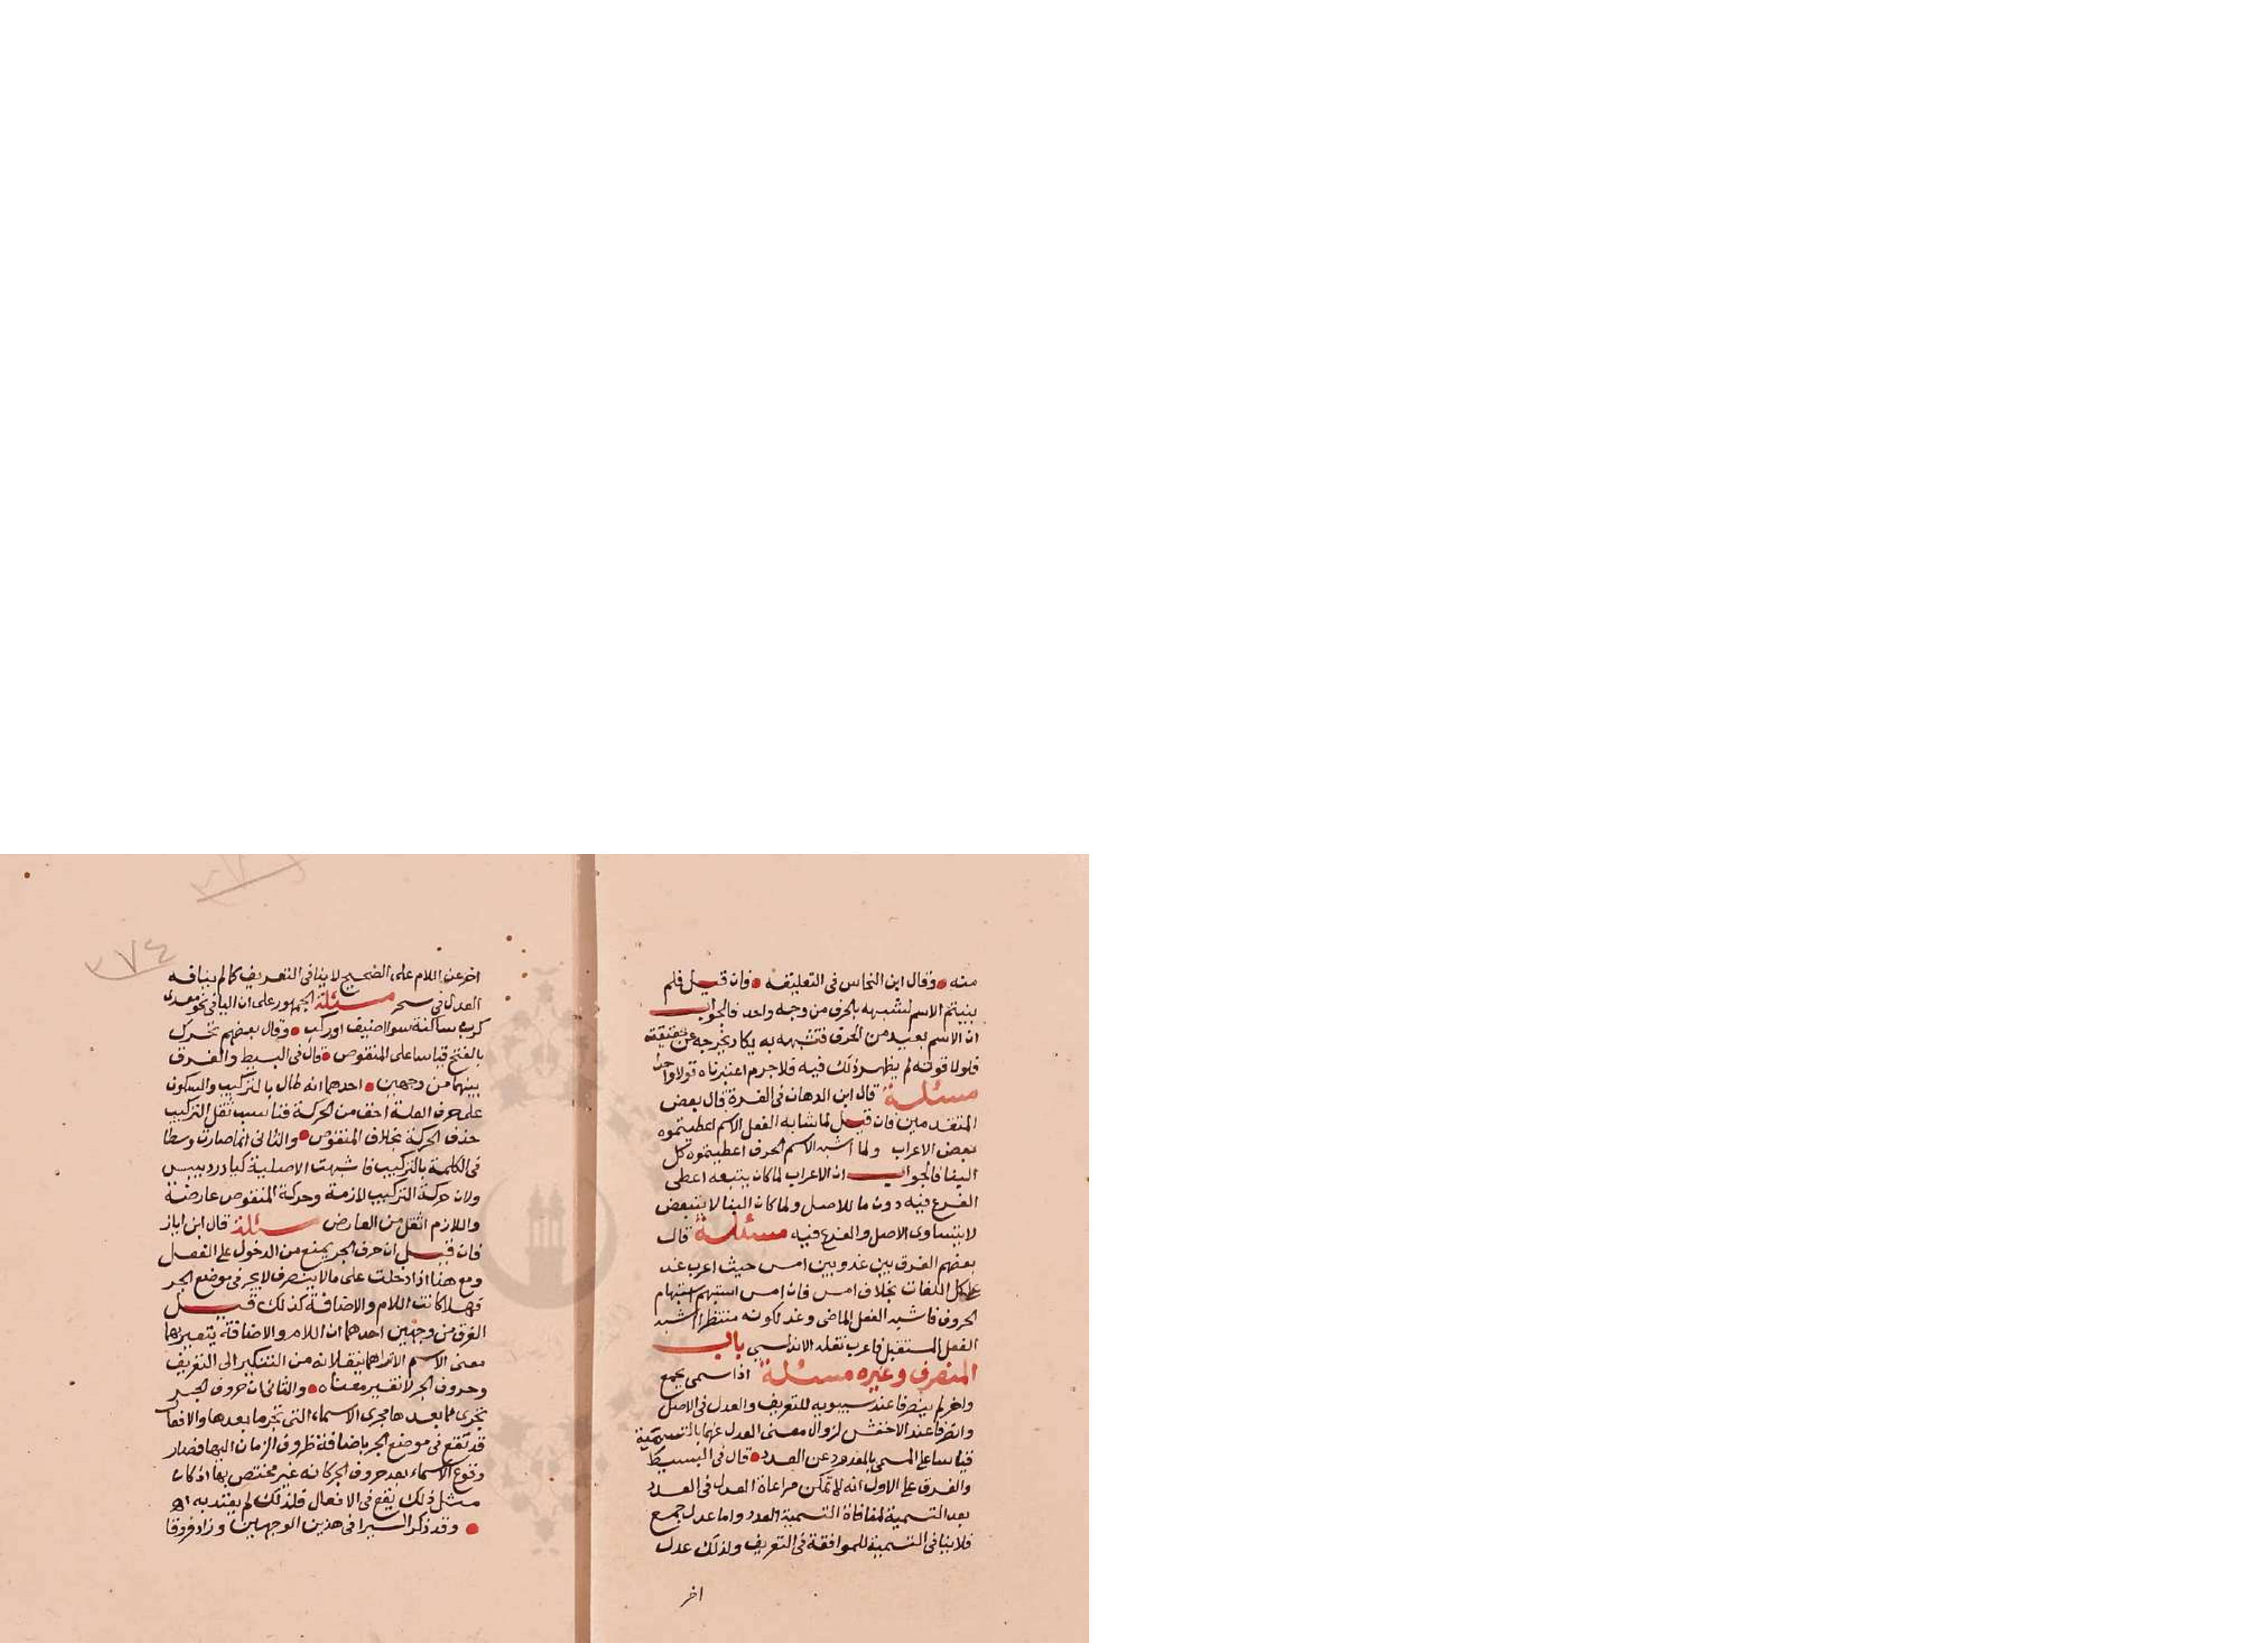 منه وقال ابن النحاس فى التعليقه فان قيل فلم
بنيتم الاسم لشبهه بالحرف من وجه واحد فالجواب
ان الاسم بعيد من الحرف فشبهه به يكاد يخرجه عن حقيقته
فلولا قوته لم يظهر ذلك فيه فلا جرم اعتبرناه قولا واحدا
مسئلة قال ابن الدهان فى الغرة قال بعض
المتقدمين فان قيل لما شابه الفعل الاسم اعطيتموه
بعض الاعراب ولما اشبه الاسم الحرف اعطيتموه كل
البنا فالجواب ان الاعراب لما كان يتبعه اعطى
الفرع فيه دون ما للاصل ولما كان البنا لا يتبعض
لا يتساوى الاصل والفرع فيه مسئلة قال
بعضهم الفرق بين غد وبين امس حيث اعرب غد
على كل اللغات بخلاف امس فان امس استبهم استبهام
الحروف فاشبه الفعل الماضى وغد لكونه منتظرا اشبه
الفعل المستقبل فاعرب نقله الاندلسى باب
المنصرف وغيره مسئلة اذا سمى بجمع
واخر لم ينصرفا عند سيبويه للتعريف والعدل فى الاصل
وانصرفا عند الاخفش لزوال معنى العدل عنهما بالتسمية
قياسا على المسمى بالمعدود عن العدد قال فى البسيط
والفرق على الاول انه لا يمكن مراعاة العدل فى العدد
بعد التسمية لمنافاة التسمية العدد واما عدل جمع
فلا ينافى التسمية للموافقة فى التعريف ولذلك عدل
اخر
٢٧٤
اخر عن اللام على الصحيح لا ينافى التعريف كما لم ينافه
العدل فى سحر مسئلة الجمهور على ان اليا فى نحو معدى
كرب ساكنة سوا اضيف او ركب وقال بعضهم تحرك
بالفتح قياسا على المنقوص قال فى البسيط والفرق
بينهما من وجهين احدهما انه طال بالتركيب والسكون
على حرف العلة اخف من الحركة فناسب ثقل التركيب
حذف الحركة بخلاف المنقوص والثانى انها صارت وسطا
فى الكلمة بالتركيب فاشبهت الاصلية كيا دردبيس
ولان حركة التركيب لازمة وحركة المنقوص عارضة
واللازم اثقل من العارض مسئلة قال ابن اياز
فان قيل ان حرف الجر يمنع من الدخول على الفعل
ومع هذا اذا دخلت على ما لا ينصرف لا يجر فى موضع الجر
فهلا كانت اللام والاضافة كذلك قيل
الفرق من وجهين احدهما ان اللام والاضافة يتغير بهما
معنى الاسم الا تراهما ينقلانه من التنكير الى التعريف
وحروف الجر لا تغير معناه والثانى ان حروف الجر
تجرى مما بعدها مجرى الاسماء التى تجر ما بعدها والافعال
قد تقع فى موضع الجر باضافة ظروف الزمان اليها فصار
وقوع الاسماء بعد حروف الجر كانه غير مختص بها اذ كان
مثل ذلك يقع فى الافعال فلذلك لم يعتد به
وقد ذكر السيرافى هذين الوجهين وزاد فروقا